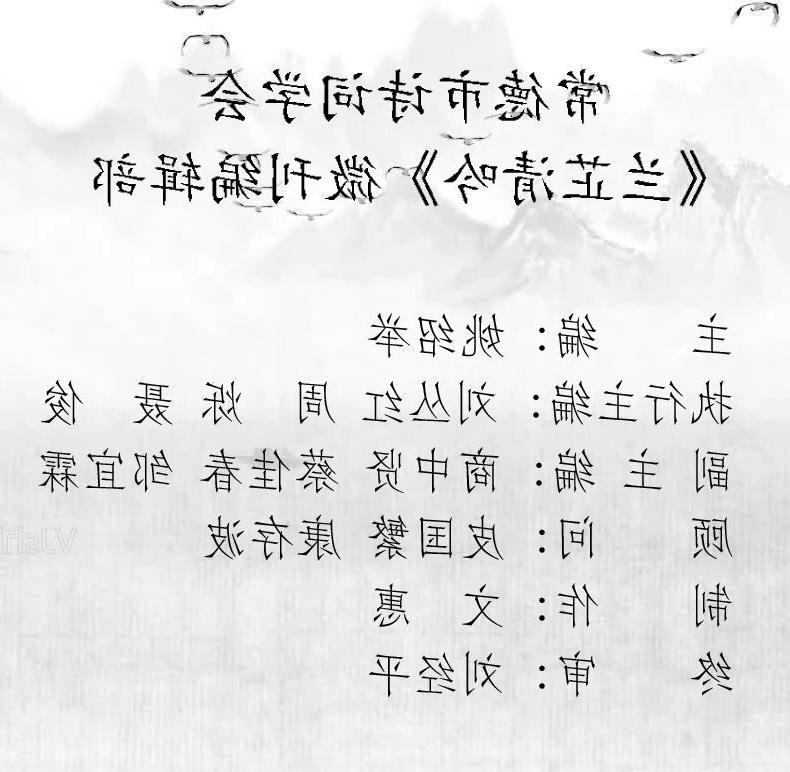 常德市诗词学会
《兰芷清吟》微刊编辑部
主 编：姚绍举
执行主编：刘丛红 周 烁 聂 俊
副 主 编：商中贤 蔡佳春 邹宜霖
顾 问：皮国繁 康存波
制 作：文 惠
终 审：刘经平